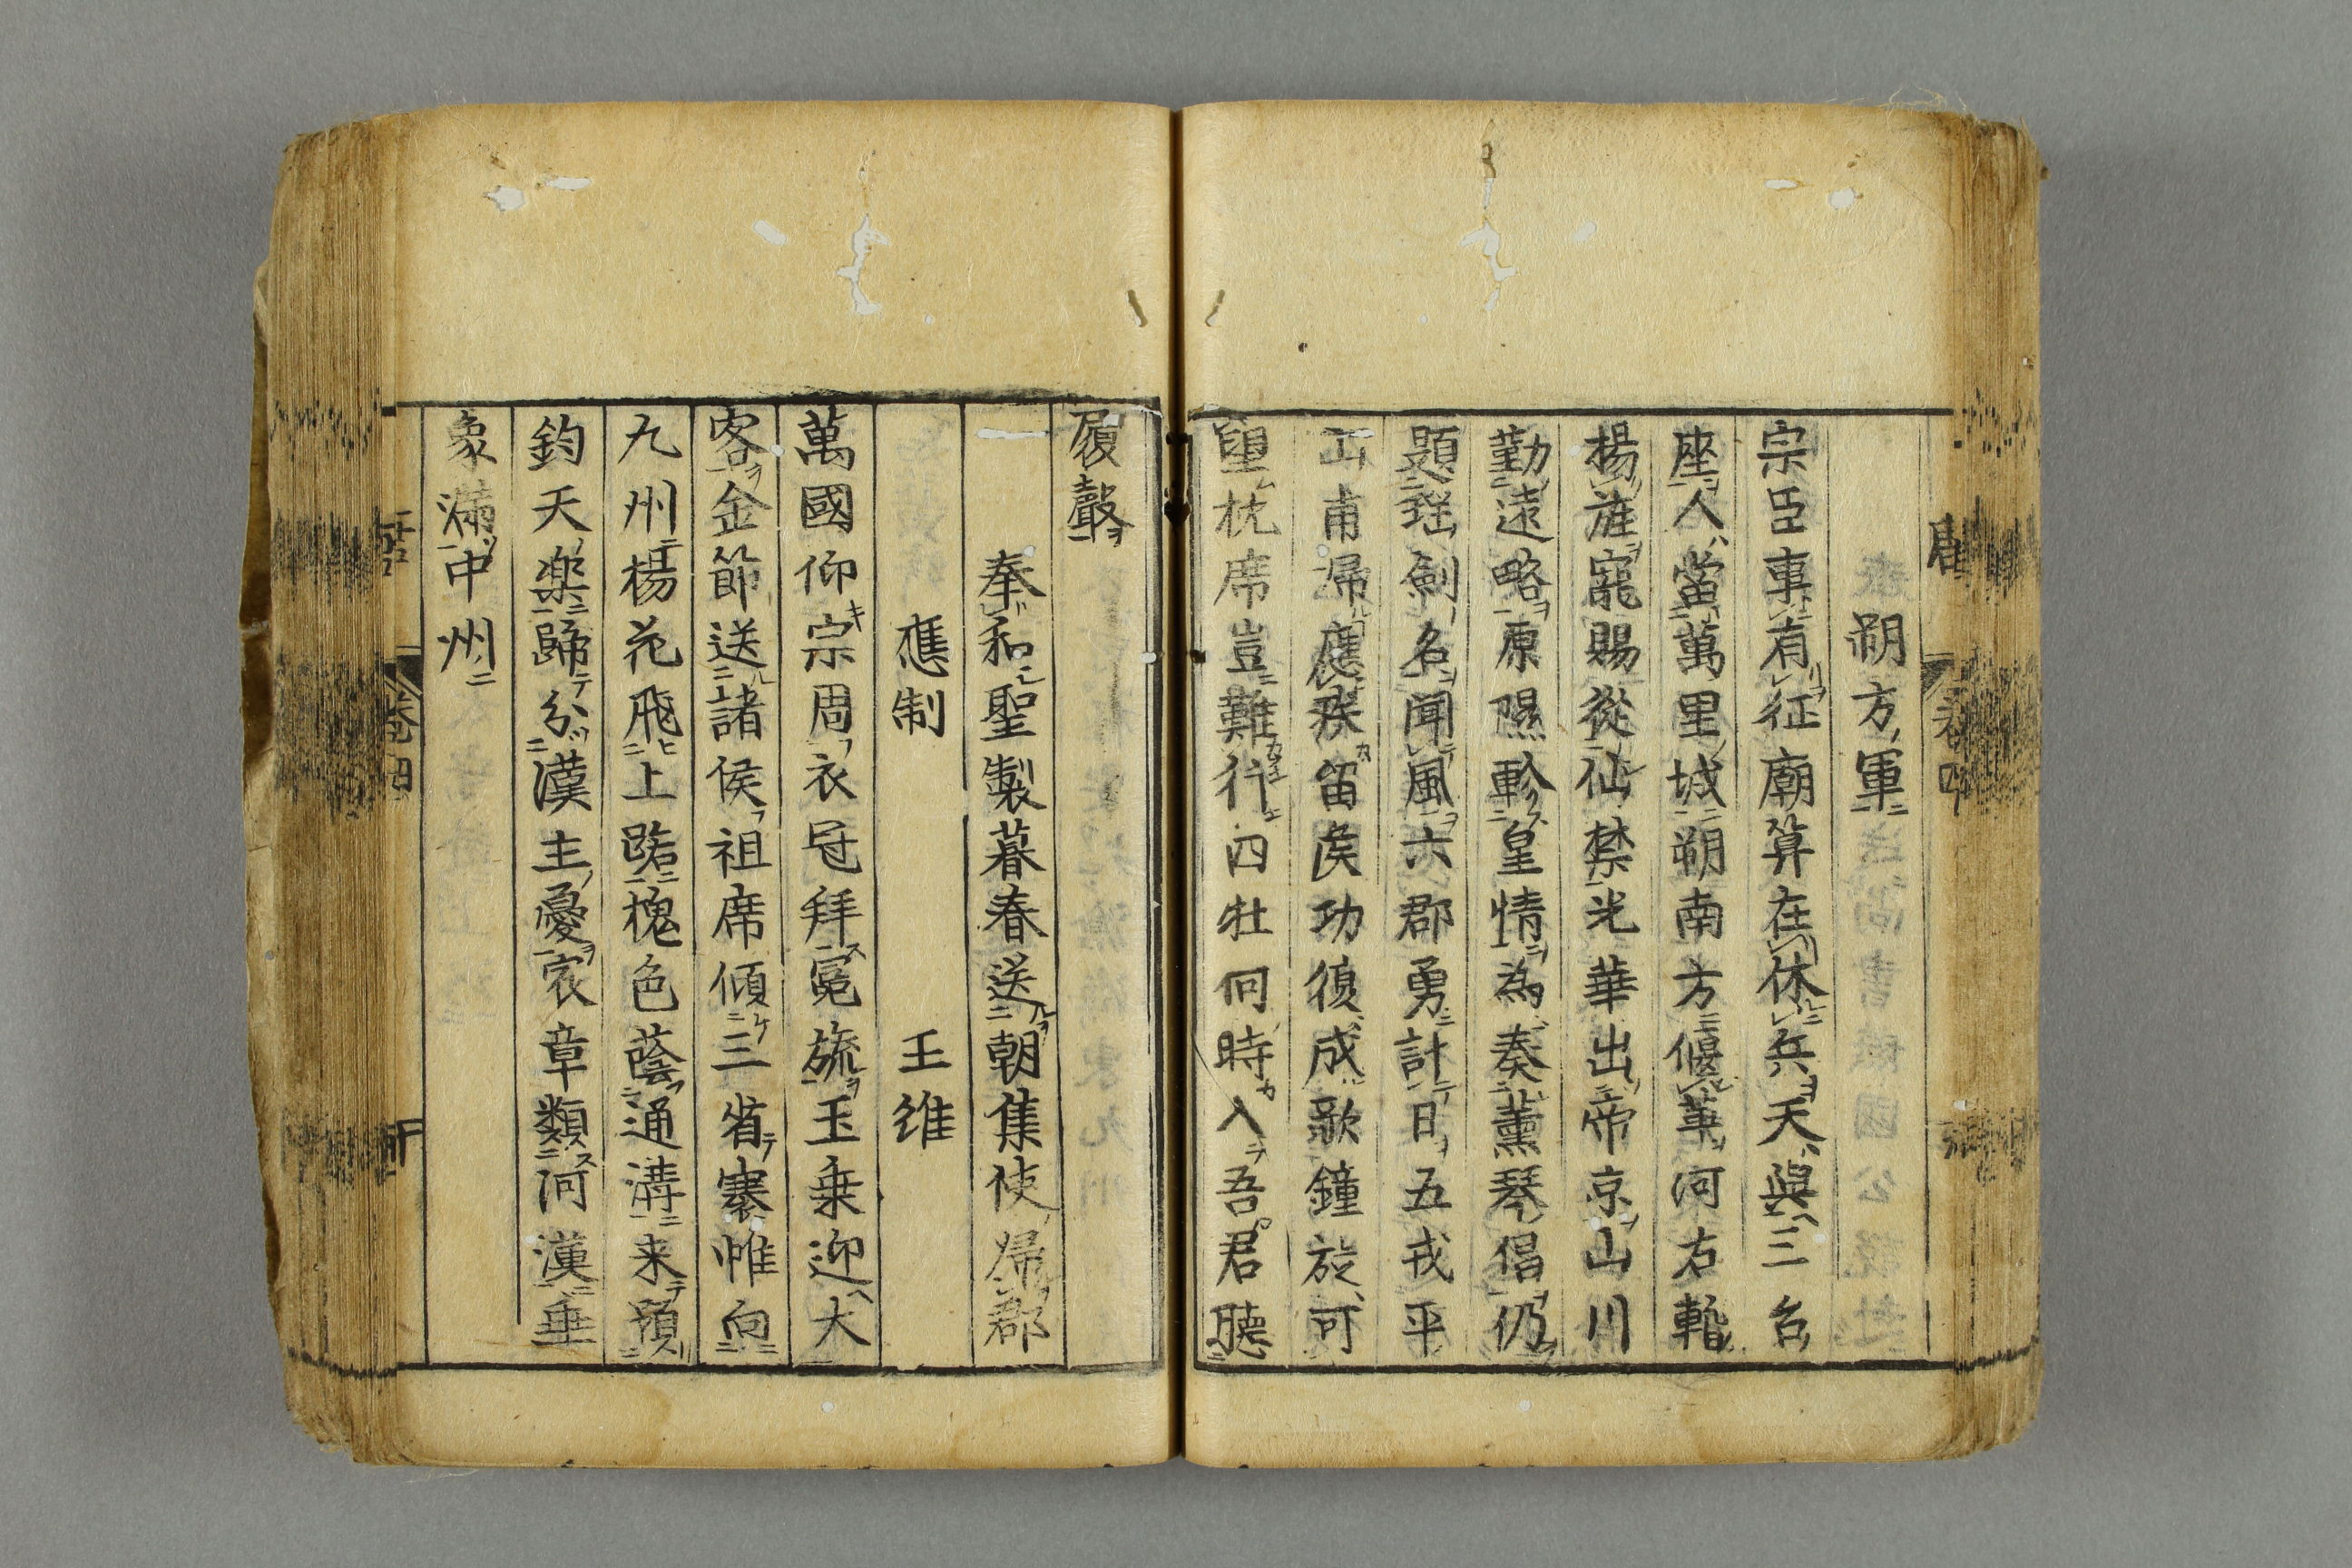 唐
巻四
朔方軍
宗臣事有征廟算在休兵天與三台
座人當萬里城朔南方偃革河右暫
揚旌寵賜從仙禁光華出帝京山川
勤遠略原隰軫皇情為奏薰琴倡仍
題瑶劍名聞風六郡勇計日五戎平
山甫帰應疾留侯功復成歌鐘旋可
望枕席豈難行四牡何時入吾君聽
履聲
奉和聖製暮春送朝集使帰郡
應制 王維
萬國仰宗周衣冠拜冕旒玉乗迎大
客金節送諸侯祖席傾三省褰帷向
九州楊花飛上路槐色蔭通溝来預
鈞天楽歸分漢主憂宸章類河漢垂
象満中州
巻四